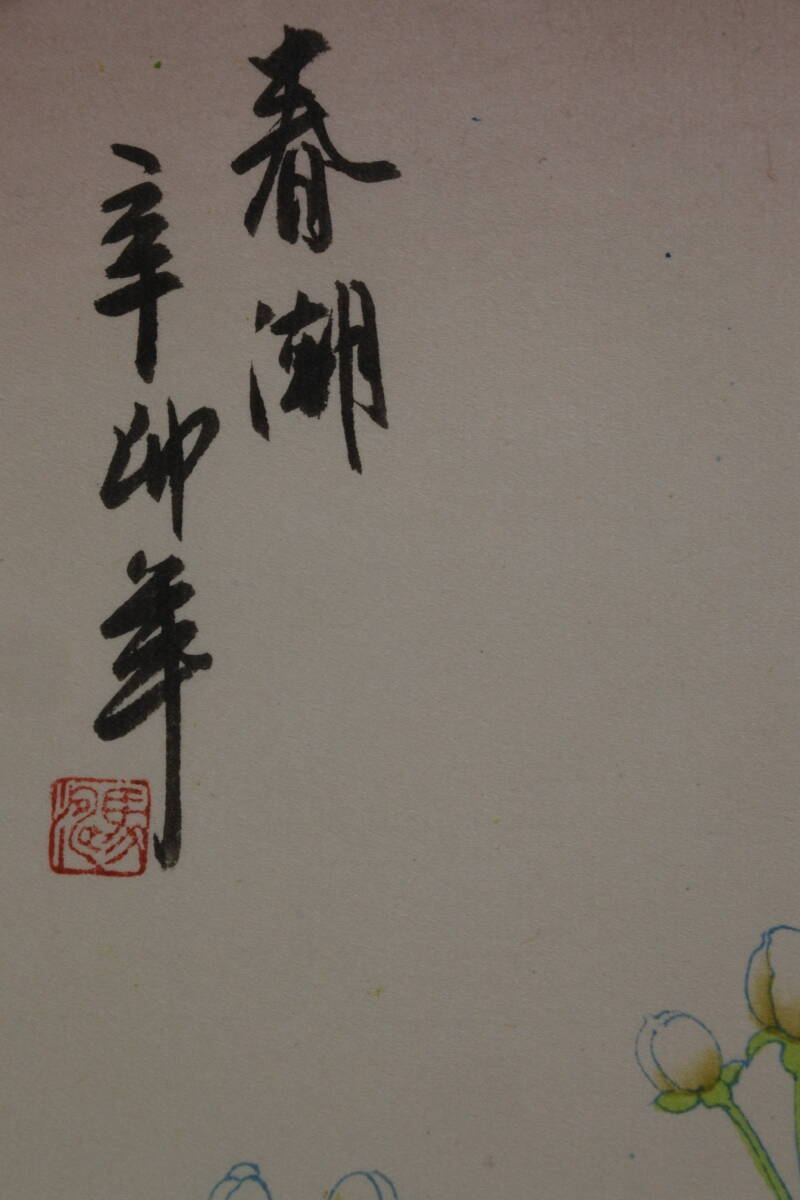 春潮
辛卯年